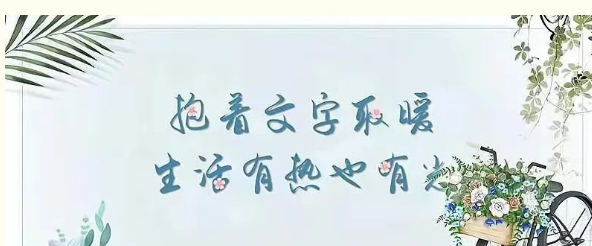 抱着文字取暖
生活有热也有光